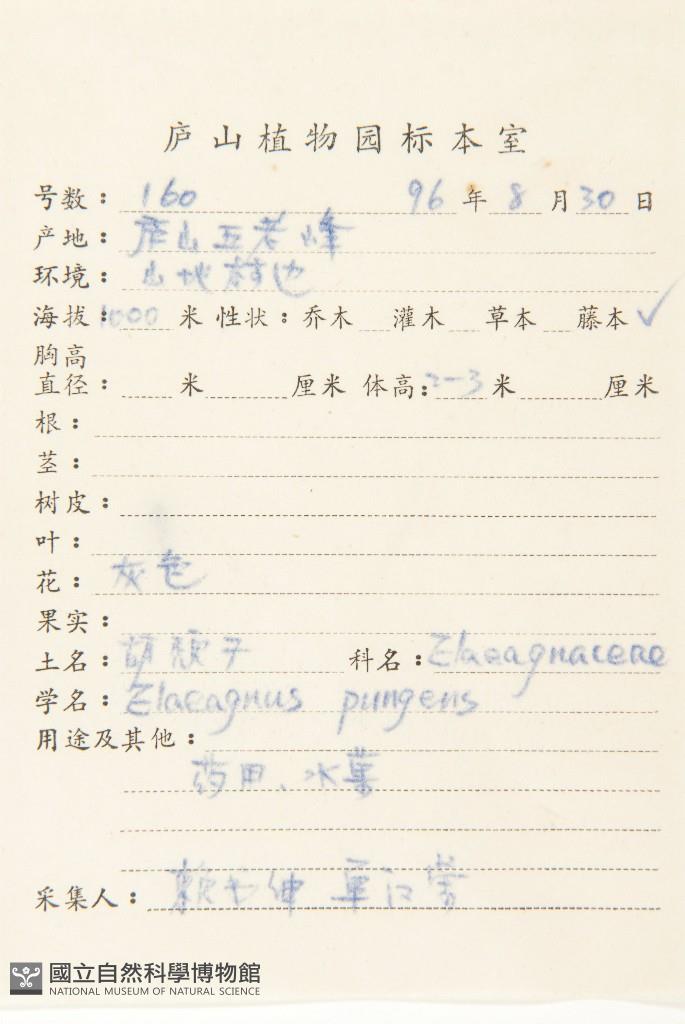 庐山植物园标本室
号数：160 96年8月30日
产地：庐山五老峰
环境：山地林边
海拔：1000米 性状：乔木 灌木 草本 藤本✓
胸高
直径： 米 厘米 体高：2-3米 厘米
根：
茎：
树皮：
叶：
花：灰色
果实：
土名：胡颓子 科名：Elaeagnaceae
学名：Elaeagnus pungens
用途及其他：
药用、水果
采集人：赖书绅 单汉荣
國立自然科學博物館
NATIONAL MUSEUM OF NATURAL SCIENCE